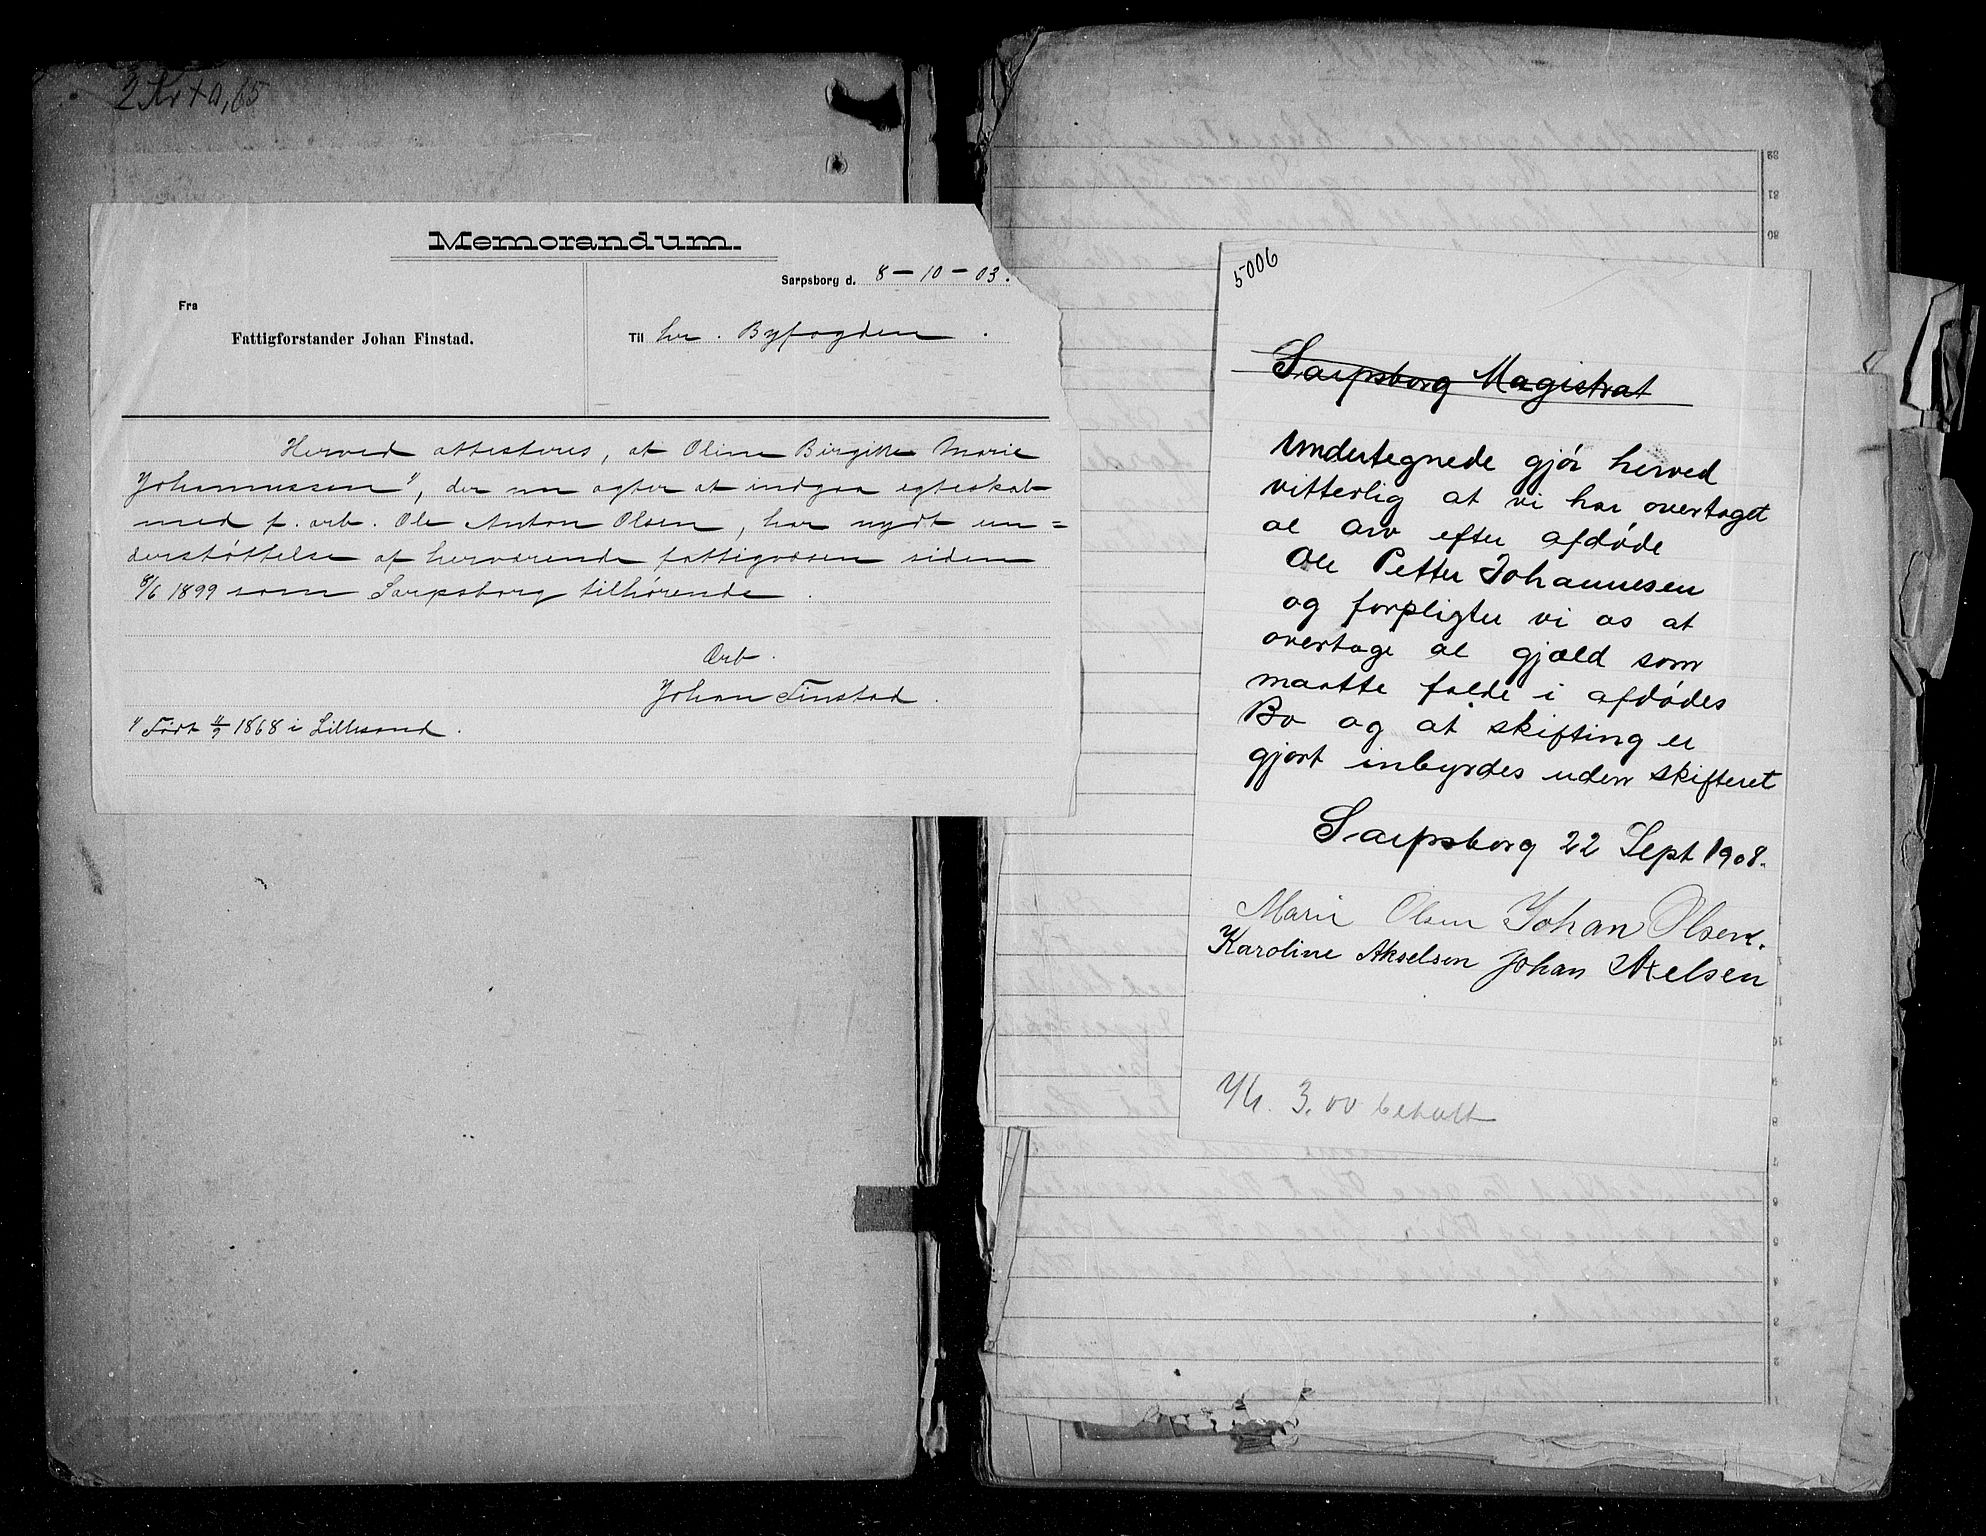 2 Kr + 0,65
Memorandum.
Sarpsborg d. 8 – 10 – 03.
Fra
Fattigforstander Johan Finstad.
Til hr. Byfogden.
Herved attesteres, at Oline Birgitte Marie
Johannessen ¹⁾, der nu agter at indgaa egteskab
med f. arb. Ole Anton Olsen, har nydt un=
derstøttelse af herværende fattigvæsen siden
8/6 1899 som Sarpsborg tilhørende.
Ærb.
Johan Finstad.
¹⁾ Født 4/9 1868 i Lillesand.
5006
Sarpsborg Magistrat
Undertegnede gjør herved
vitterlig at vi har overtaget
al arv efter afdøde
Ole Petter Johannesen
og forpligter vi os at
overtage al gjæld som
maatte falde i afdødes
Bo og at skifting er
gjort inbyrdes uden skifteret
Sarpsborg 22 Sept 1908.
Marie Olsen Johan Olsen.
Karoline Akselsen Johan Axelsen
Kr. 3.00 betalt